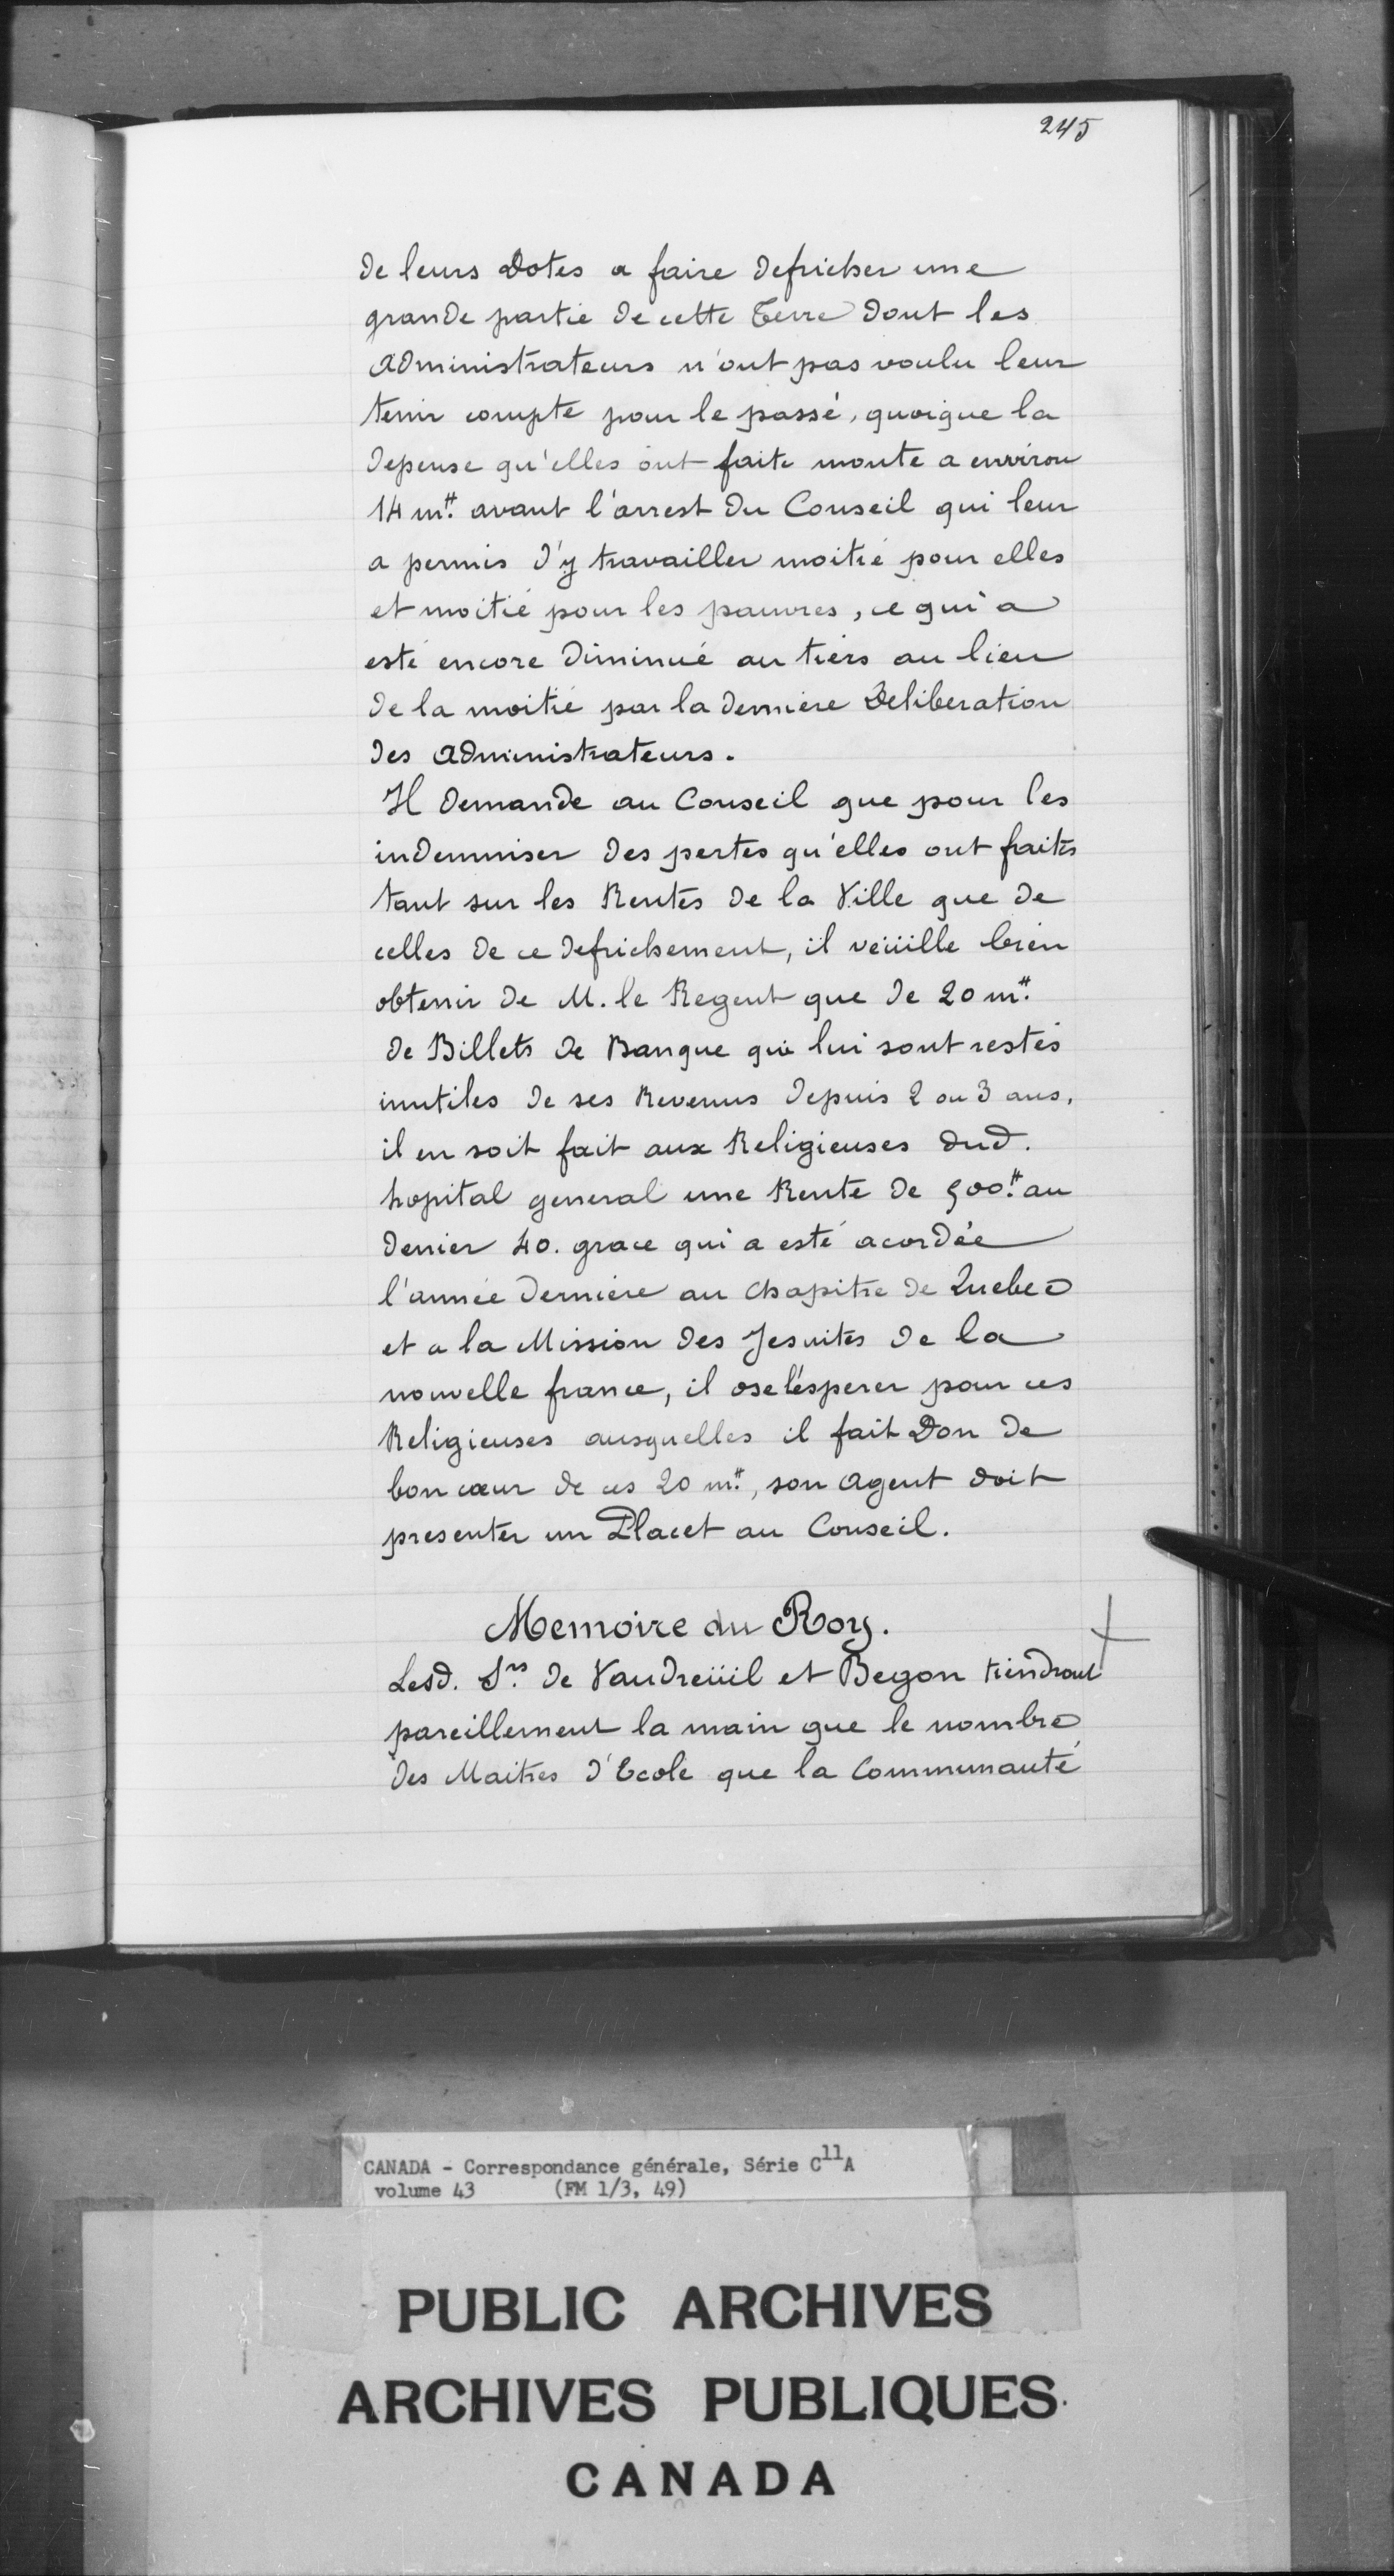 245
de leurs Dotes a faire defricher une
grande partie de cette Terre dont les
administrateurs n'ont pas voulu leur
tenir compte pour le passé, quoique la
depense qu'elles ont faite monte a environ
14 m.# avant l'arrest du Conseil qui leur
a permis d'y travailler moitié pour elles
et moitié pour les pauvres, ce qui a
esté encore diminué au tiers au lieu
de la moitié par la derniere Deliberation
des administrateurs.
Il demande au Conseil que pour les
indemniser des pertes qu'elles ont faites
tant sur les Rentes de la Ville que de
celles de ce defrichement, il veüille bien
obtenir de M. le Regent que de 20 m.#
de Billets de Banque qui lui sont restés
inutiles de ses Revenus depuis 2 ou 3 ans,
il en soit fait aux Religieuses dud.
hopital general une Rente de 500.# au
denier 40. grace qui a esté acordée
l'année derniere au Chapitre de Quebec
et a la Mission des Jesuites de la
nouvelle france, il ose l'esperer pour ces
Religieuses ausquelles il fait Don de
bon cœur de ces 20 m.#, son agent doit
presenter un Placet au Conseil.
Memoire du Roy.
Lesd. Srs. de Vaudreüil et Begon tiendront
pareillement la main que le nombre
des Maitres d'Ecole que la Communauté
CANADA - Correspondance générale, Série C11A
volume 43 (FM 1/3, 49)
PUBLIC ARCHIVES
ARCHIVES PUBLIQUES
CANADA